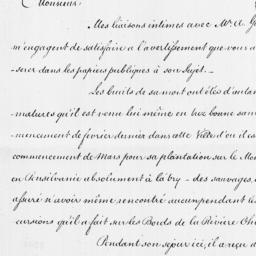 Monsieur:
Mes liaisons intimes avec Mr. A. G
m'engagent de satisfaire a l'avertissement que vous a
-serer dans les papiers publiques à son sujet.-
Les bruits de sa mort ont étés d'autan
-matures qu'il est venu lui même en bonne san
-mencement de fevrier dernier dans cette Ville d'ou il es
commencement de Mars pour sa plantation sur le Mo
en Pensilvanie absolument à l'abry - des sauvages,
assuré n'avoir même rencontré aucun pendant les
cursions qu'il a fait sur les Bords de la Rivière Ohi
Pendant son séjour ici, il a reçu d